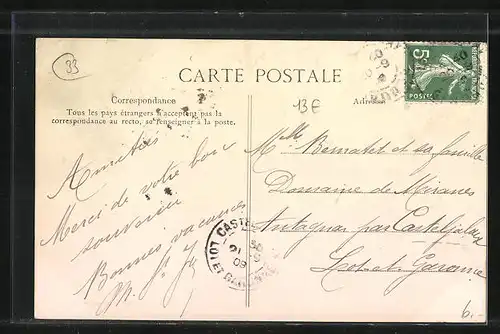 33
CARTE POSTALE
Correspondance
Tous les pays étrangers n'acceptent pas la
correspondance au recto, se renseigner à la poste.
13E
Adresse
5
POSTES
Amitiés
Merci de votre bon
souvenir
Bonnes vacances
M.
CASTELJALOUX
LOT ET GARONNE
09
Mlle Bernatet et sa famille
Domaine de
Antagnac par Casteljaloux
Lot et Garonne
6.-